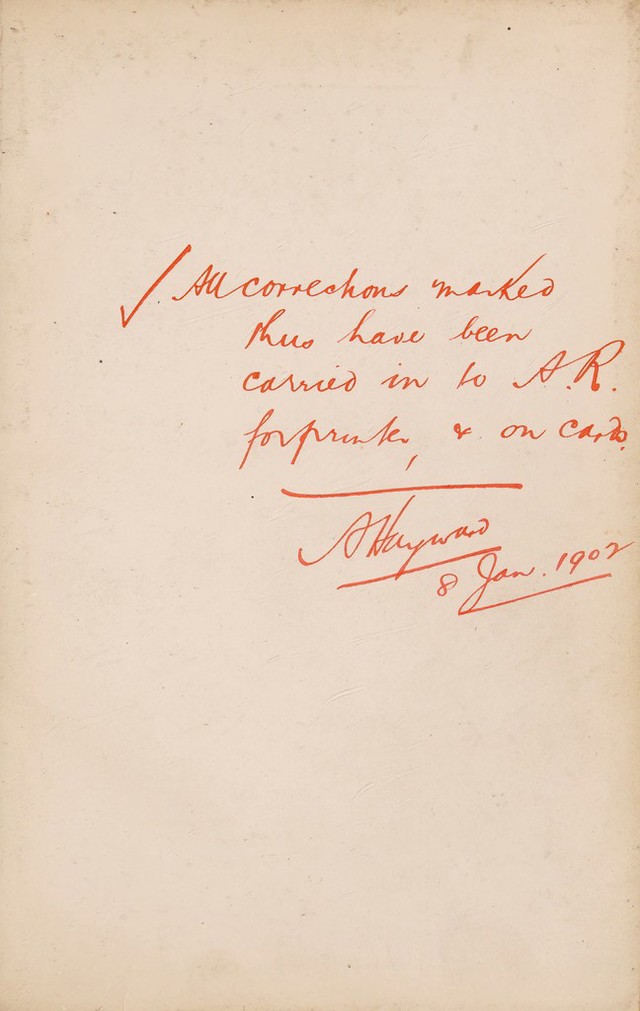 ✓ All corrections marked
thus have been
carried in to A.R.
for printer, & on cards.
A Hayward
8 Jan. 1902